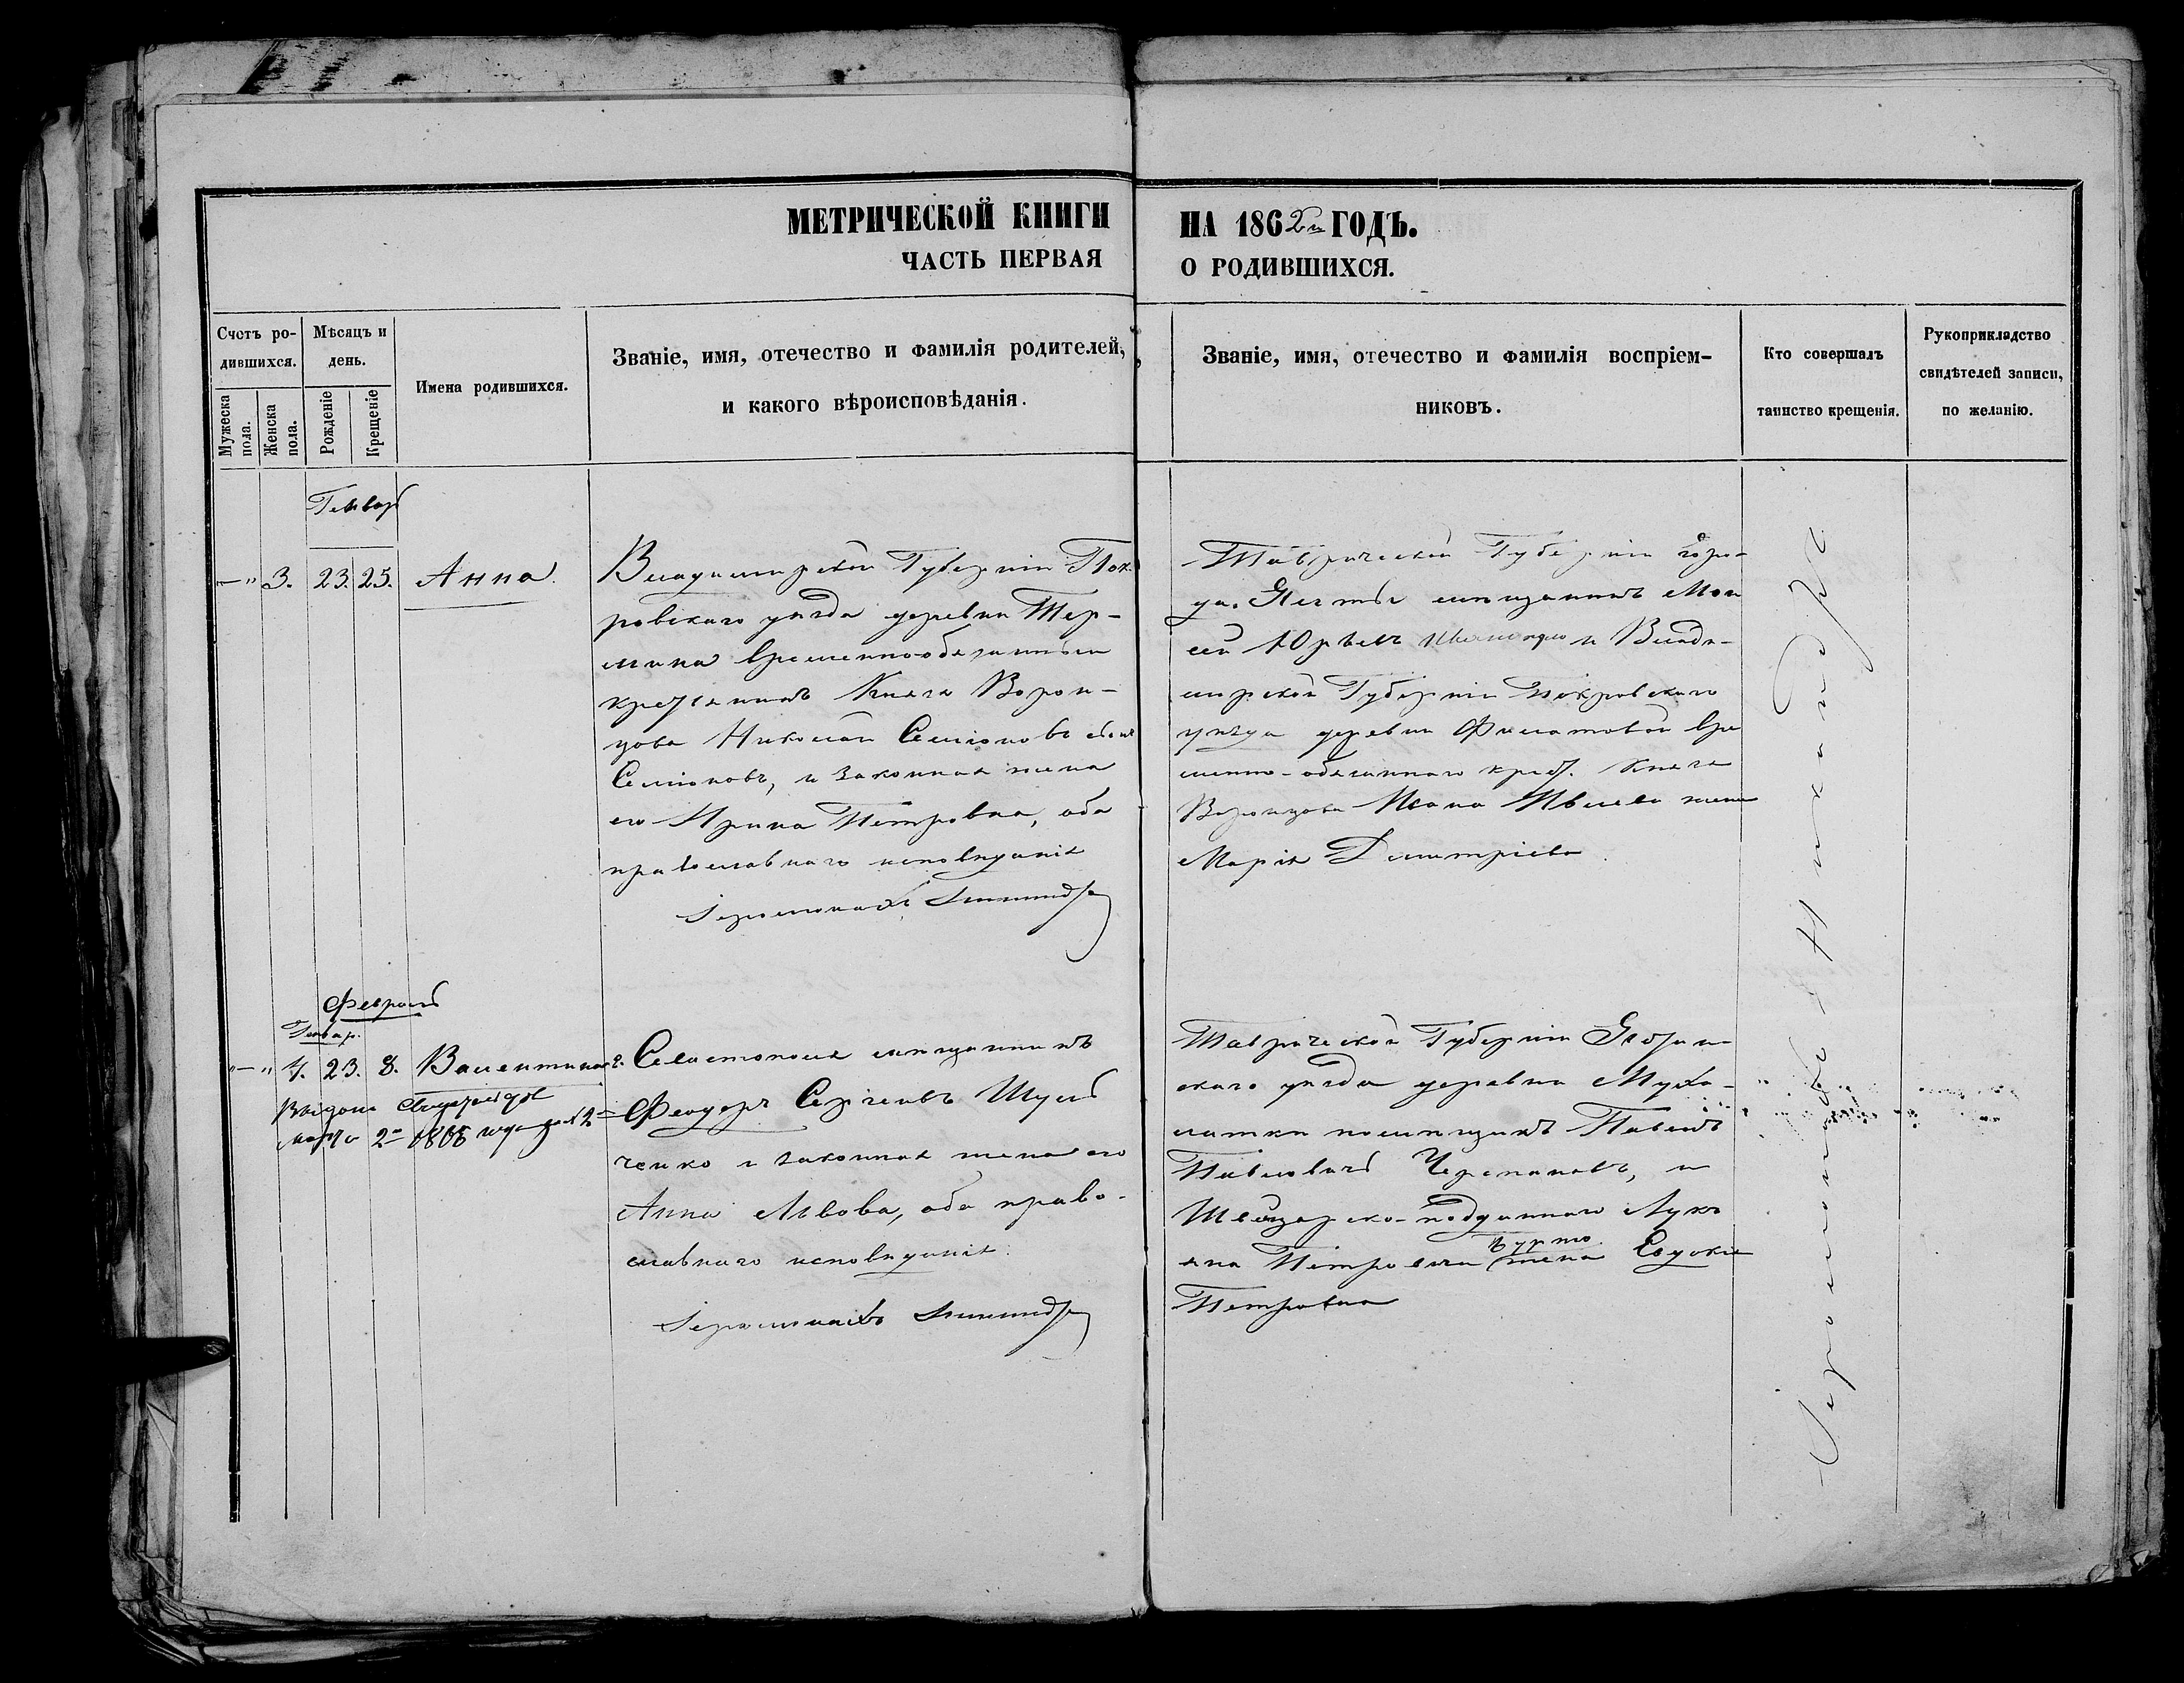 МЕТРИЧЕСКОЙ КНИГИ НА 1862й ГОДЪ.
ЧАСТЬ ПЕРВАЯ О РОДИВШИХСЯ.
Счетъ ро-
дившихся.
Мужеска пола.
Женска пола.
Мѣсяцъ и
день.
Рожденіе
Крещеніе
Имена родившихся.
Званіе, имя, отечество и фамилія родителей,
и какого вѣроисповѣданія.
Званіе, имя, отечество и фамилія воспріем-
никовъ.
Кто совершалъ
таинство крещенія.
Рукоприкладство
свидѣтелей записи,
по желанію.
Генварь
—" 3. 23. 25. Анна.
Владимирской Губерніи Пок-
ровскаго уѣзда деревни Тер-
мина временно-обязанный
крестьянинъ Князя Ворон-
цова Николай Семіоновъ
Семіоновъ, и законная жена
его Ирина Петровна, оба
православнаго исповѣданія
Іеромонахъ
Таврической Губерніи горо-
да Ялты мѣщанинъ Мои
сей Юрьевъ и Влади-
мирской Губерніи Покровскаго
уѣзда деревни Филатовой вре
менно-обязаннаго крест. Князя
Воронцова Ивана жена
Марія Димитріева
Февраль
Генвар.
"—" 4. 23. 8. Валентина
Выдано Свидетельство
Марта 2го года за № 2
г. Севастополя мѣщанинъ
Феодоръ Сергеевъ Шуль
ченко и законная жена его
Анна Львова, оба право-
славнаго исповѣданія.
Іеромонахъ
Таврической Губерніи Ялтин-
скаго уѣзда деревни Муха-
латки помѣщикъ Павелъ
Павловичъ Черепановъ, и
Швейцарско-подданнаго Лукь
яна Петровича жена Евдокія
Петровна
Іеромонахъ Никандръ